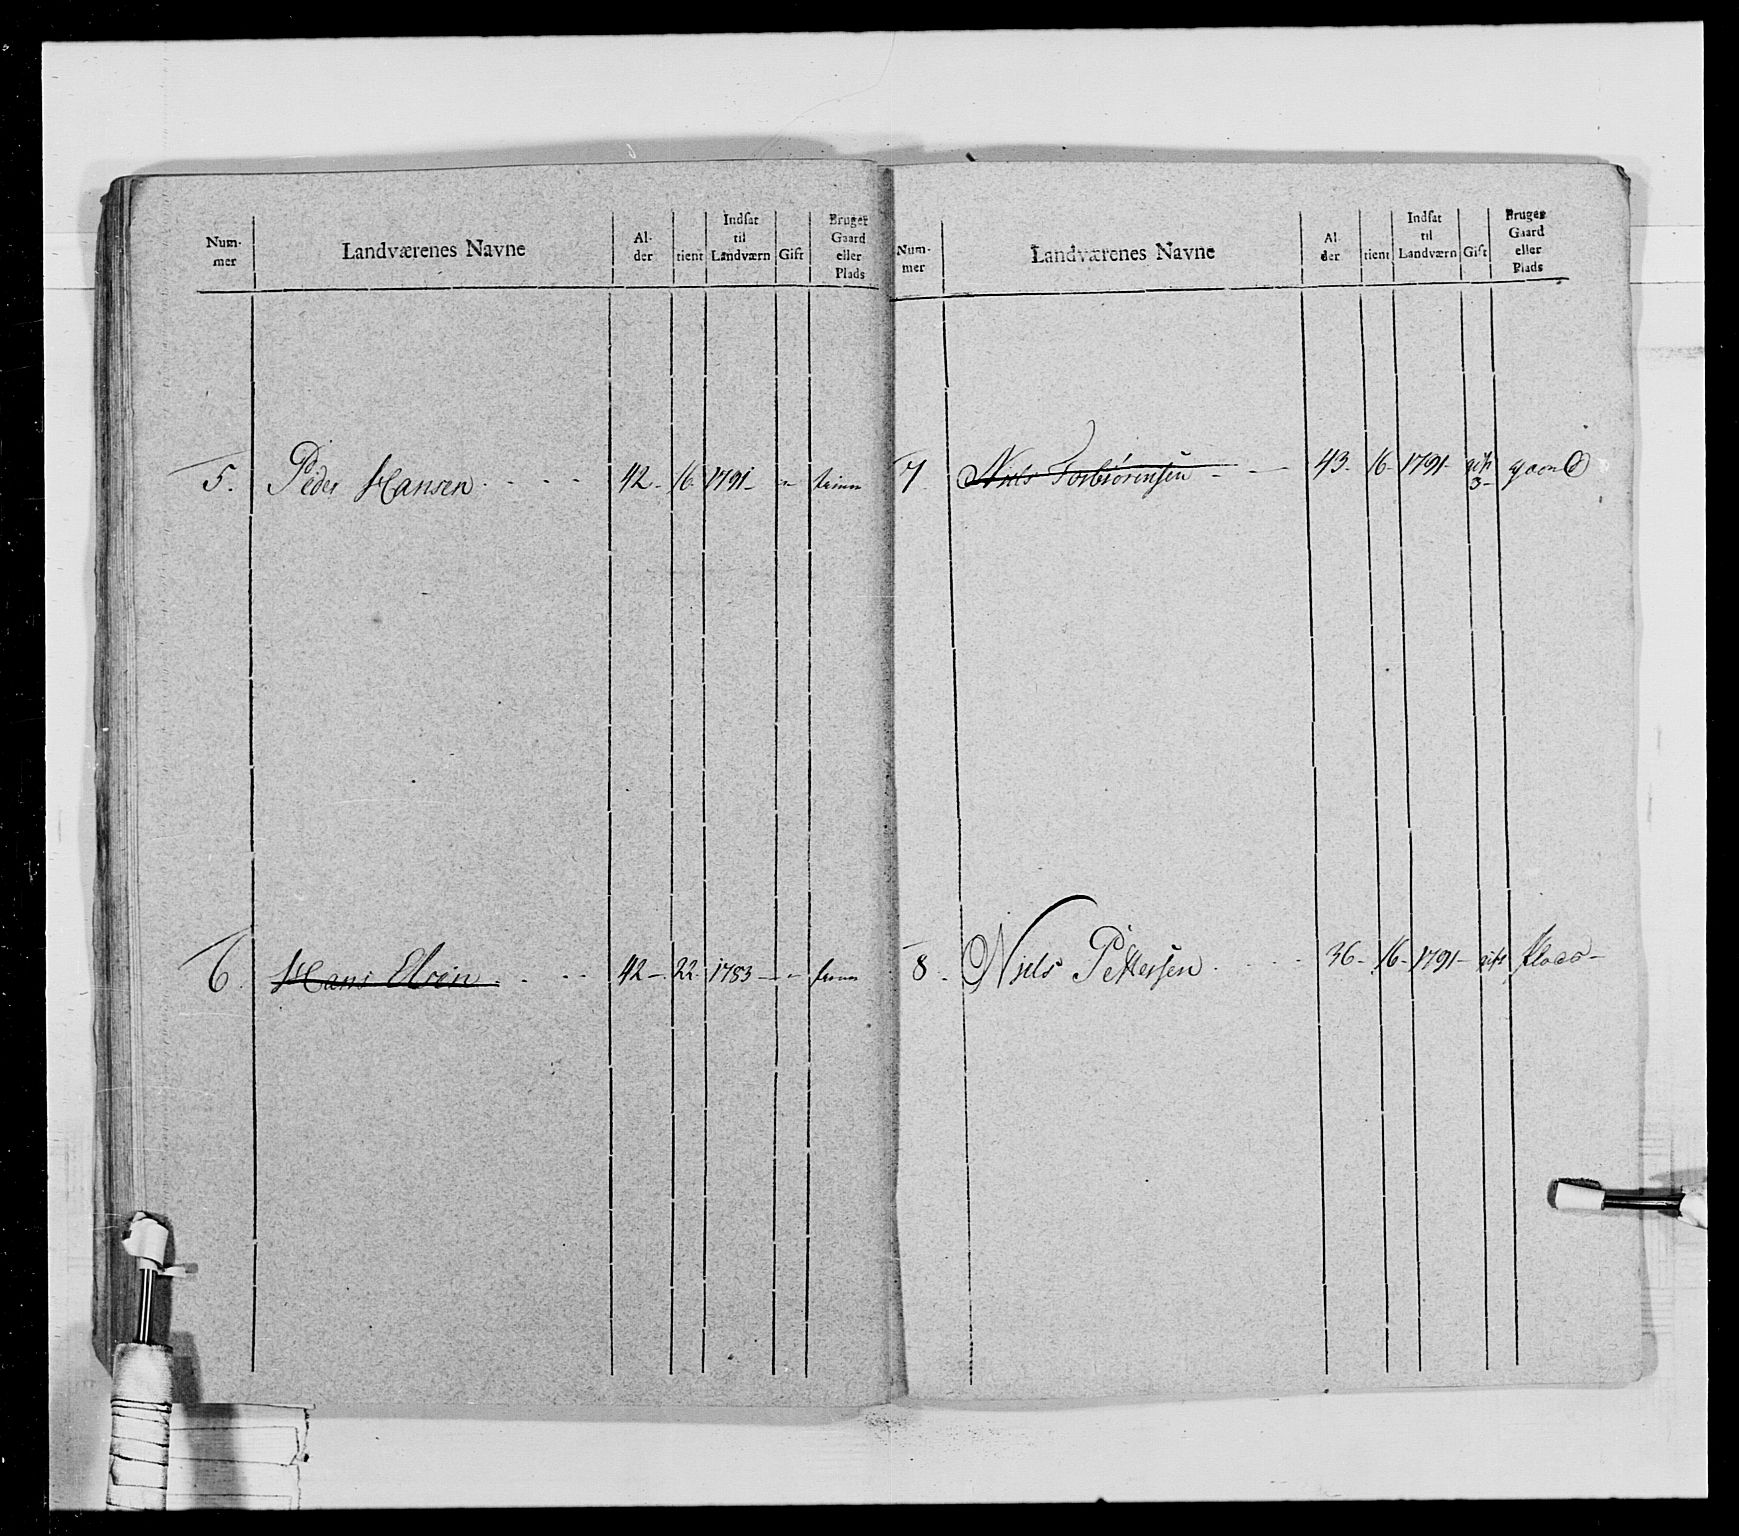 Num-mer Landværenes Navne Al-der tient Indsat til Landværn Gift Bruger Gaard eller Plads
5. Peder Hansen 42 - 16 - 1791 - -
6. Hans Olsen 42 - 22 - 1783 - -
Num-mer Landværenes Navne Al-der tient Indsat til Landværn Gift Bruger Gaard eller Plads
7. Niels Torbiørensen - 43 - 16 - 1791 - gift 3 - gaard
8. Niels Pettersen 36 - 16 - 1791 - gift plads -